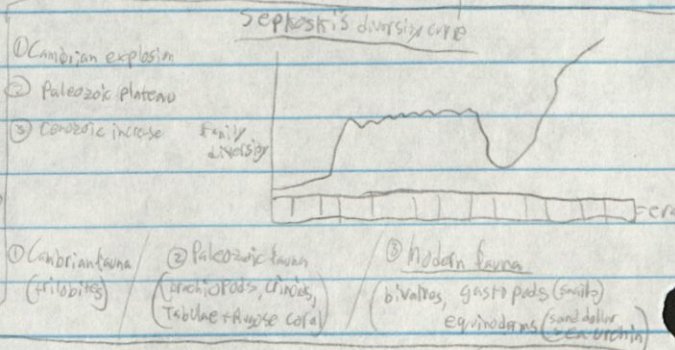 Sepkoski's diversity curve
① Cambrian explosion
② Paleozoic plateau
③ Cenozoic increase
Family
diversity
=era
① Cambrian fauna
(trilobites)
② Paleozoic fauna
(brachiopods, crinoids,
Tabulae + Rugose coral)
③ Modern fauna
bivalves, gastropods (snails)
equinoderms (sand dollar
sea urchin)